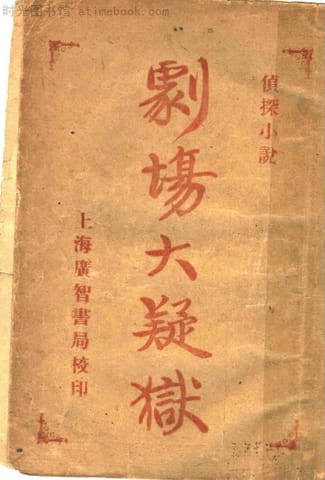 时光图书馆 atimebook.com
偵探小說
劇場大疑獄
上海廣智書局校印